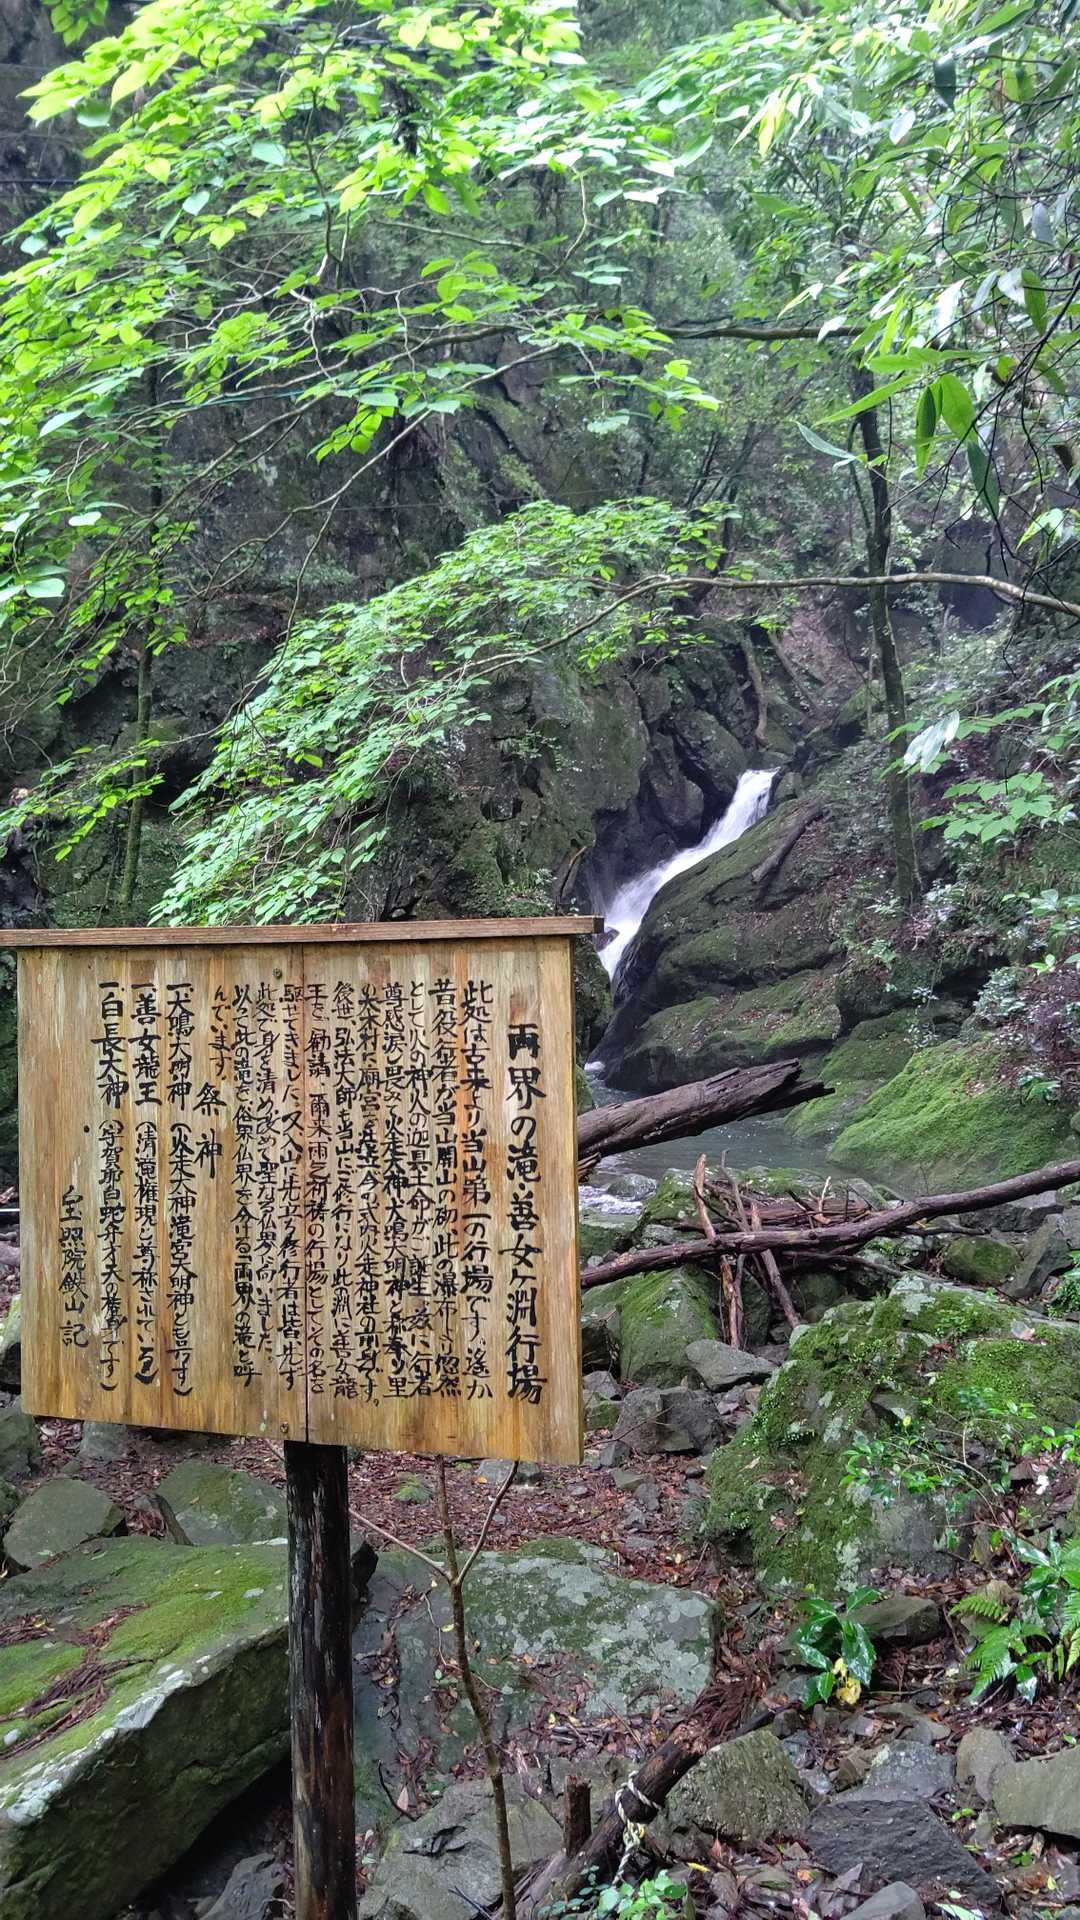 両界の滝善女ヶ淵行場
此処は古来より当山第一の行場です。遙か
昔役行者が当山開山の砌、此の瀑布より忽然
として火の神火の迦具土命がご誕生、茲に行者
尊感涙し畏みて火走大神、犬鳴大明神と称奉り里
の大木村に廟宮を建立今の式内火走神社の前身です。
後世弘法大師も当山にご修行になり此の淵に善女龍
王をご勧請、爾来雨乞祈祷の行場としてその名を
馳せてきました。又入山に先立ち修行者は皆、先ず
此処で身を清め改めて聖なる仏界へ向いました。
以って此の滝を俗界仏界を分ける両界の滝と呼
んでいます。
祭神
一、犬鳴大明神（火走大神滝宮大明神とも号す）
一、善女龍王（清滝権現と尊称されている）
一、白長大神（宇賀耶白蛇弁才天の棲家です）
宝照院鉄山記